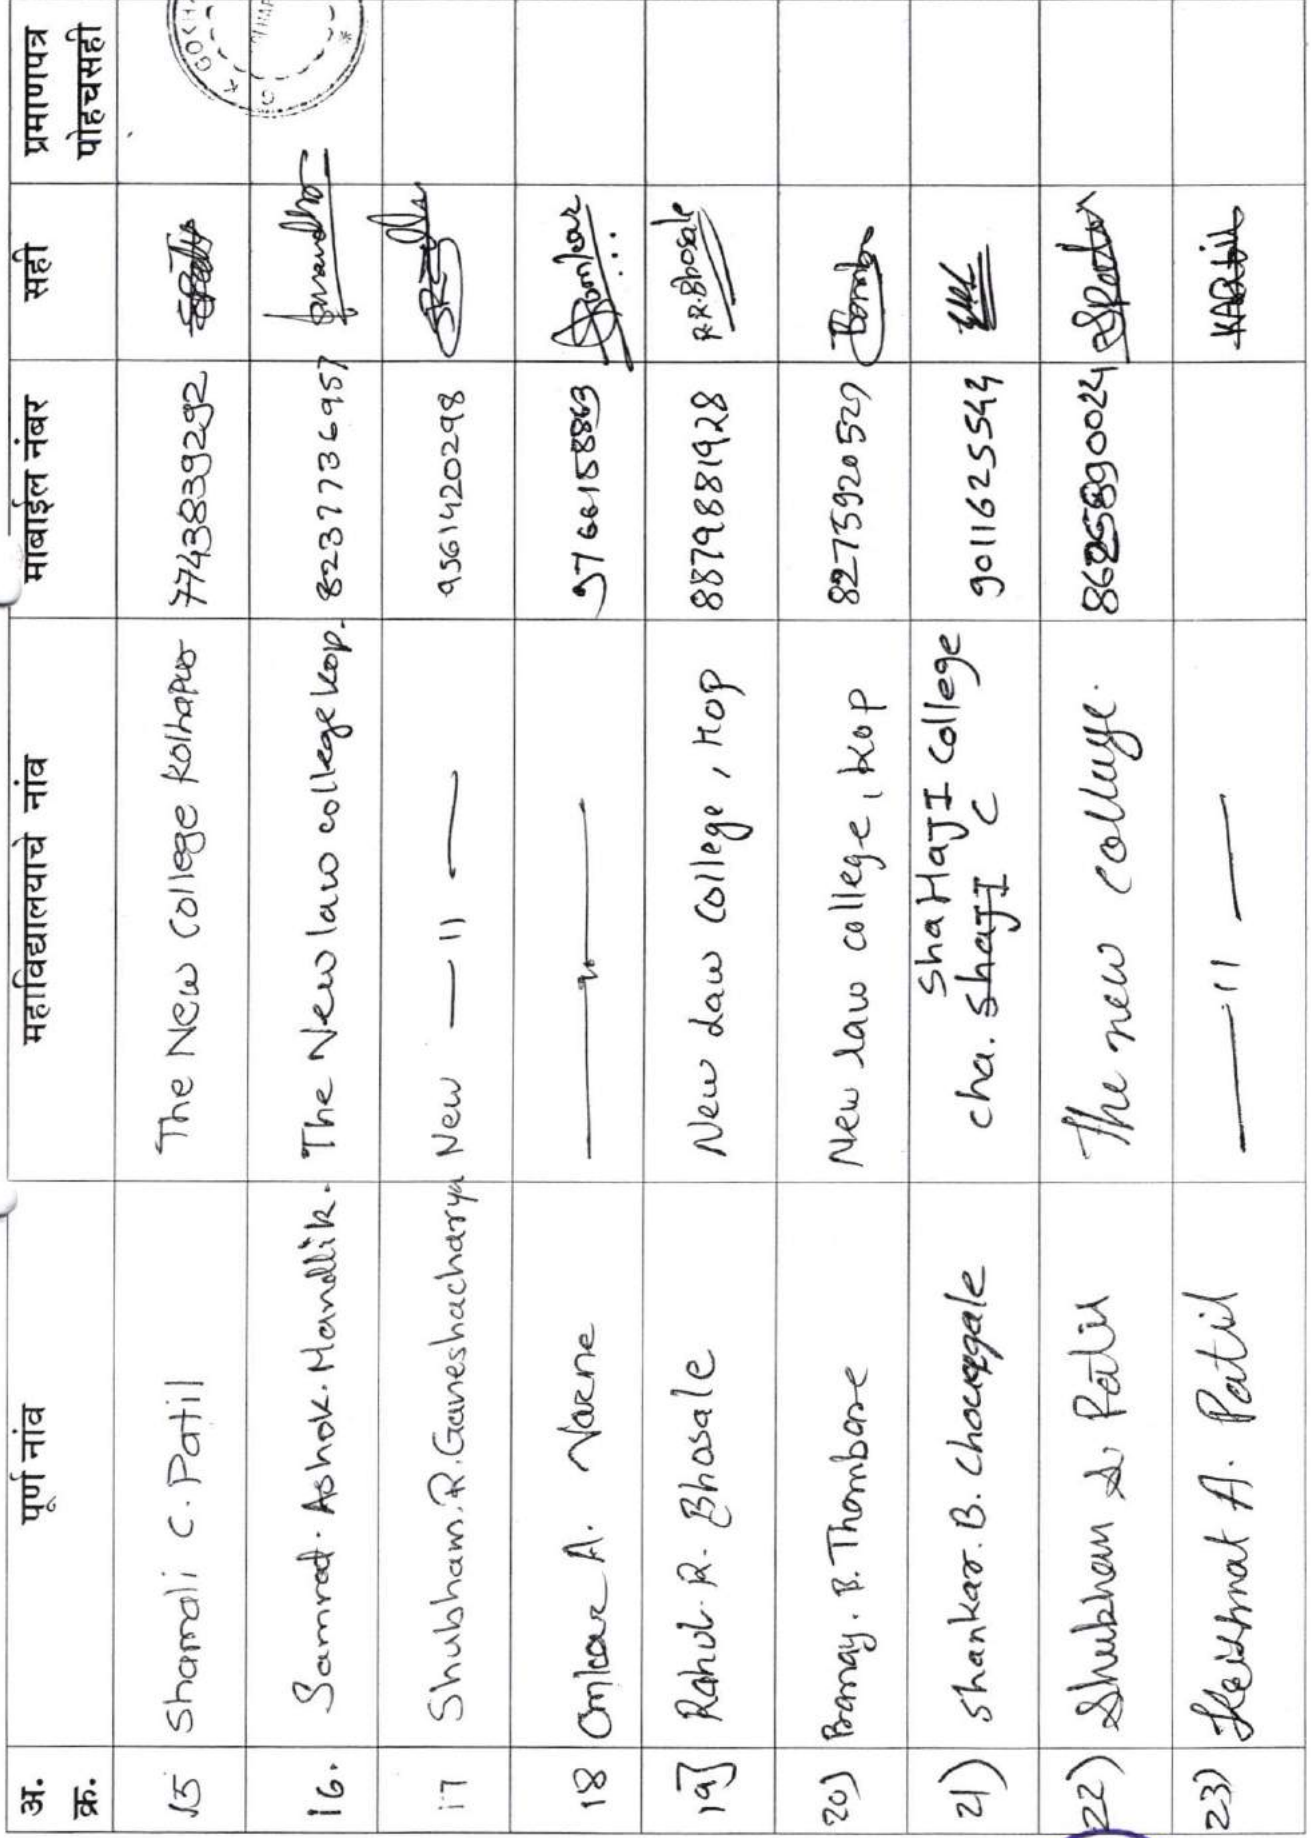 अ. क्र. पूर्ण नांव महाविद्यालयाचे नांव मोबाईल नंबर सही प्रमाणपत्र पोहचसही
15 Shamali C. Patil The New College Kolhapur 7743839292
16. Samrat. Ashok. Mandlik. The New law college kop. 8237736957
17 Shubham. R. Ganeshacharya New — 11 — 9561420298
18 Omkar A. Varne 9766158863
19] Rahul. R. Bhosale New Law College, Kop 8879881928 R.R.Bhosale
20) B. Thombare New law college, Kop
21) Shankar. B. Chougale ShaHaJI College cha. ShaJI C 9011625544
22) Shubham S. Patil The new college. 8625890024 SPatil
23) Krishnat A. Patil — 11 — KAPatil